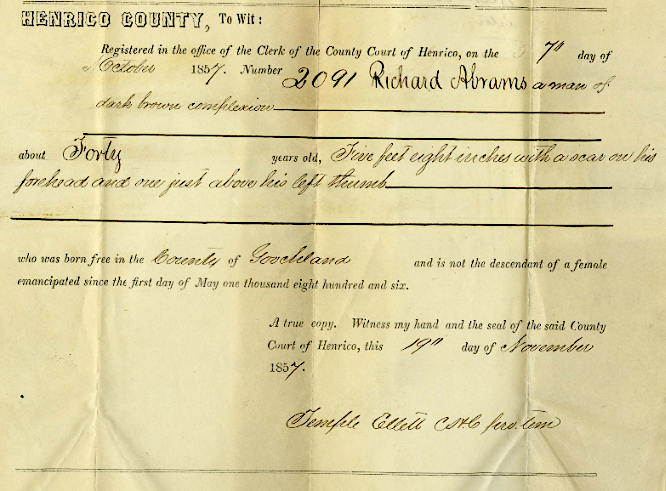 HENRICO COUNTY, To Wit:
Registered in the office of the Clerk of the County Court of Henrico, on the 7th day of
October 1857. Number 2091 Richard Abrams a man of
dark brown complexion
about Forty years old, Five feet eight inches with a scar on his
forehead and one just above his left thumb
who was born free in the County of Goochland and is not the descendant of a female
emancipated since the first day of May one thousand eight hundred and six.
A true copy. Witness my hand and the seal of the said County
Court of Henrico, this 19th day of November
1857.
Temple Ellett pro. tem